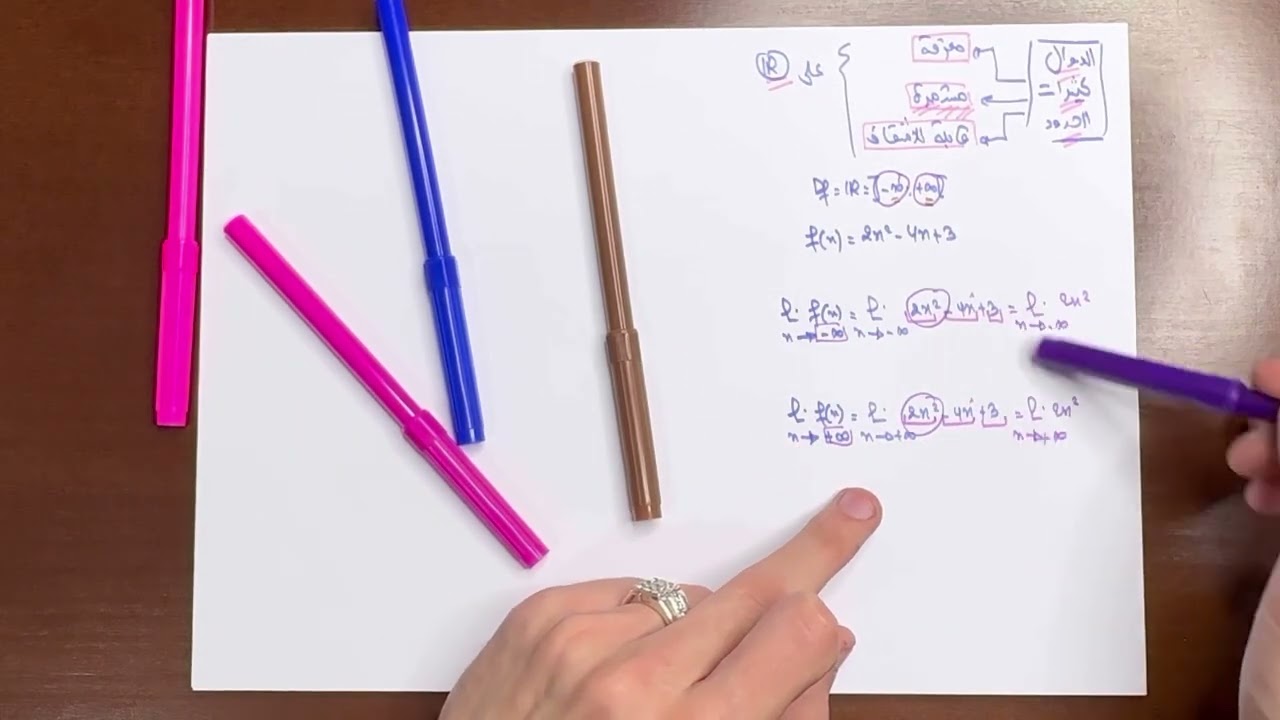 الدوال
كثيرات
الحدود
معرفة
مستمرة
قابلة للاشتقاق
على ℝ
Df = ℝ = ]-∞, +∞[
f(x) = 2x² - 4x + 3
lim f(x) = lim 2x² - 4x + 3 = lim 2x²
x→-∞ x→-∞ x→-∞
lim f(x) = lim 2x² - 4x + 3 = lim 2x²
x→+∞ x→+∞ x→+∞